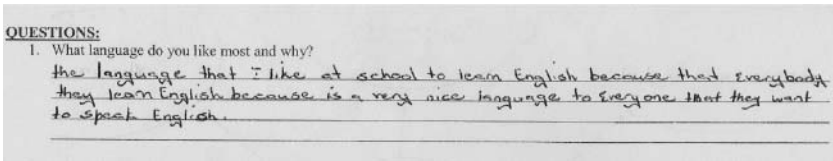 QUESTIONS:
1. What language do you like most and why?
the language that I like at school to learn English because that Everybody
they learn English because is a very nice language to Everyone that they want
to speak English.